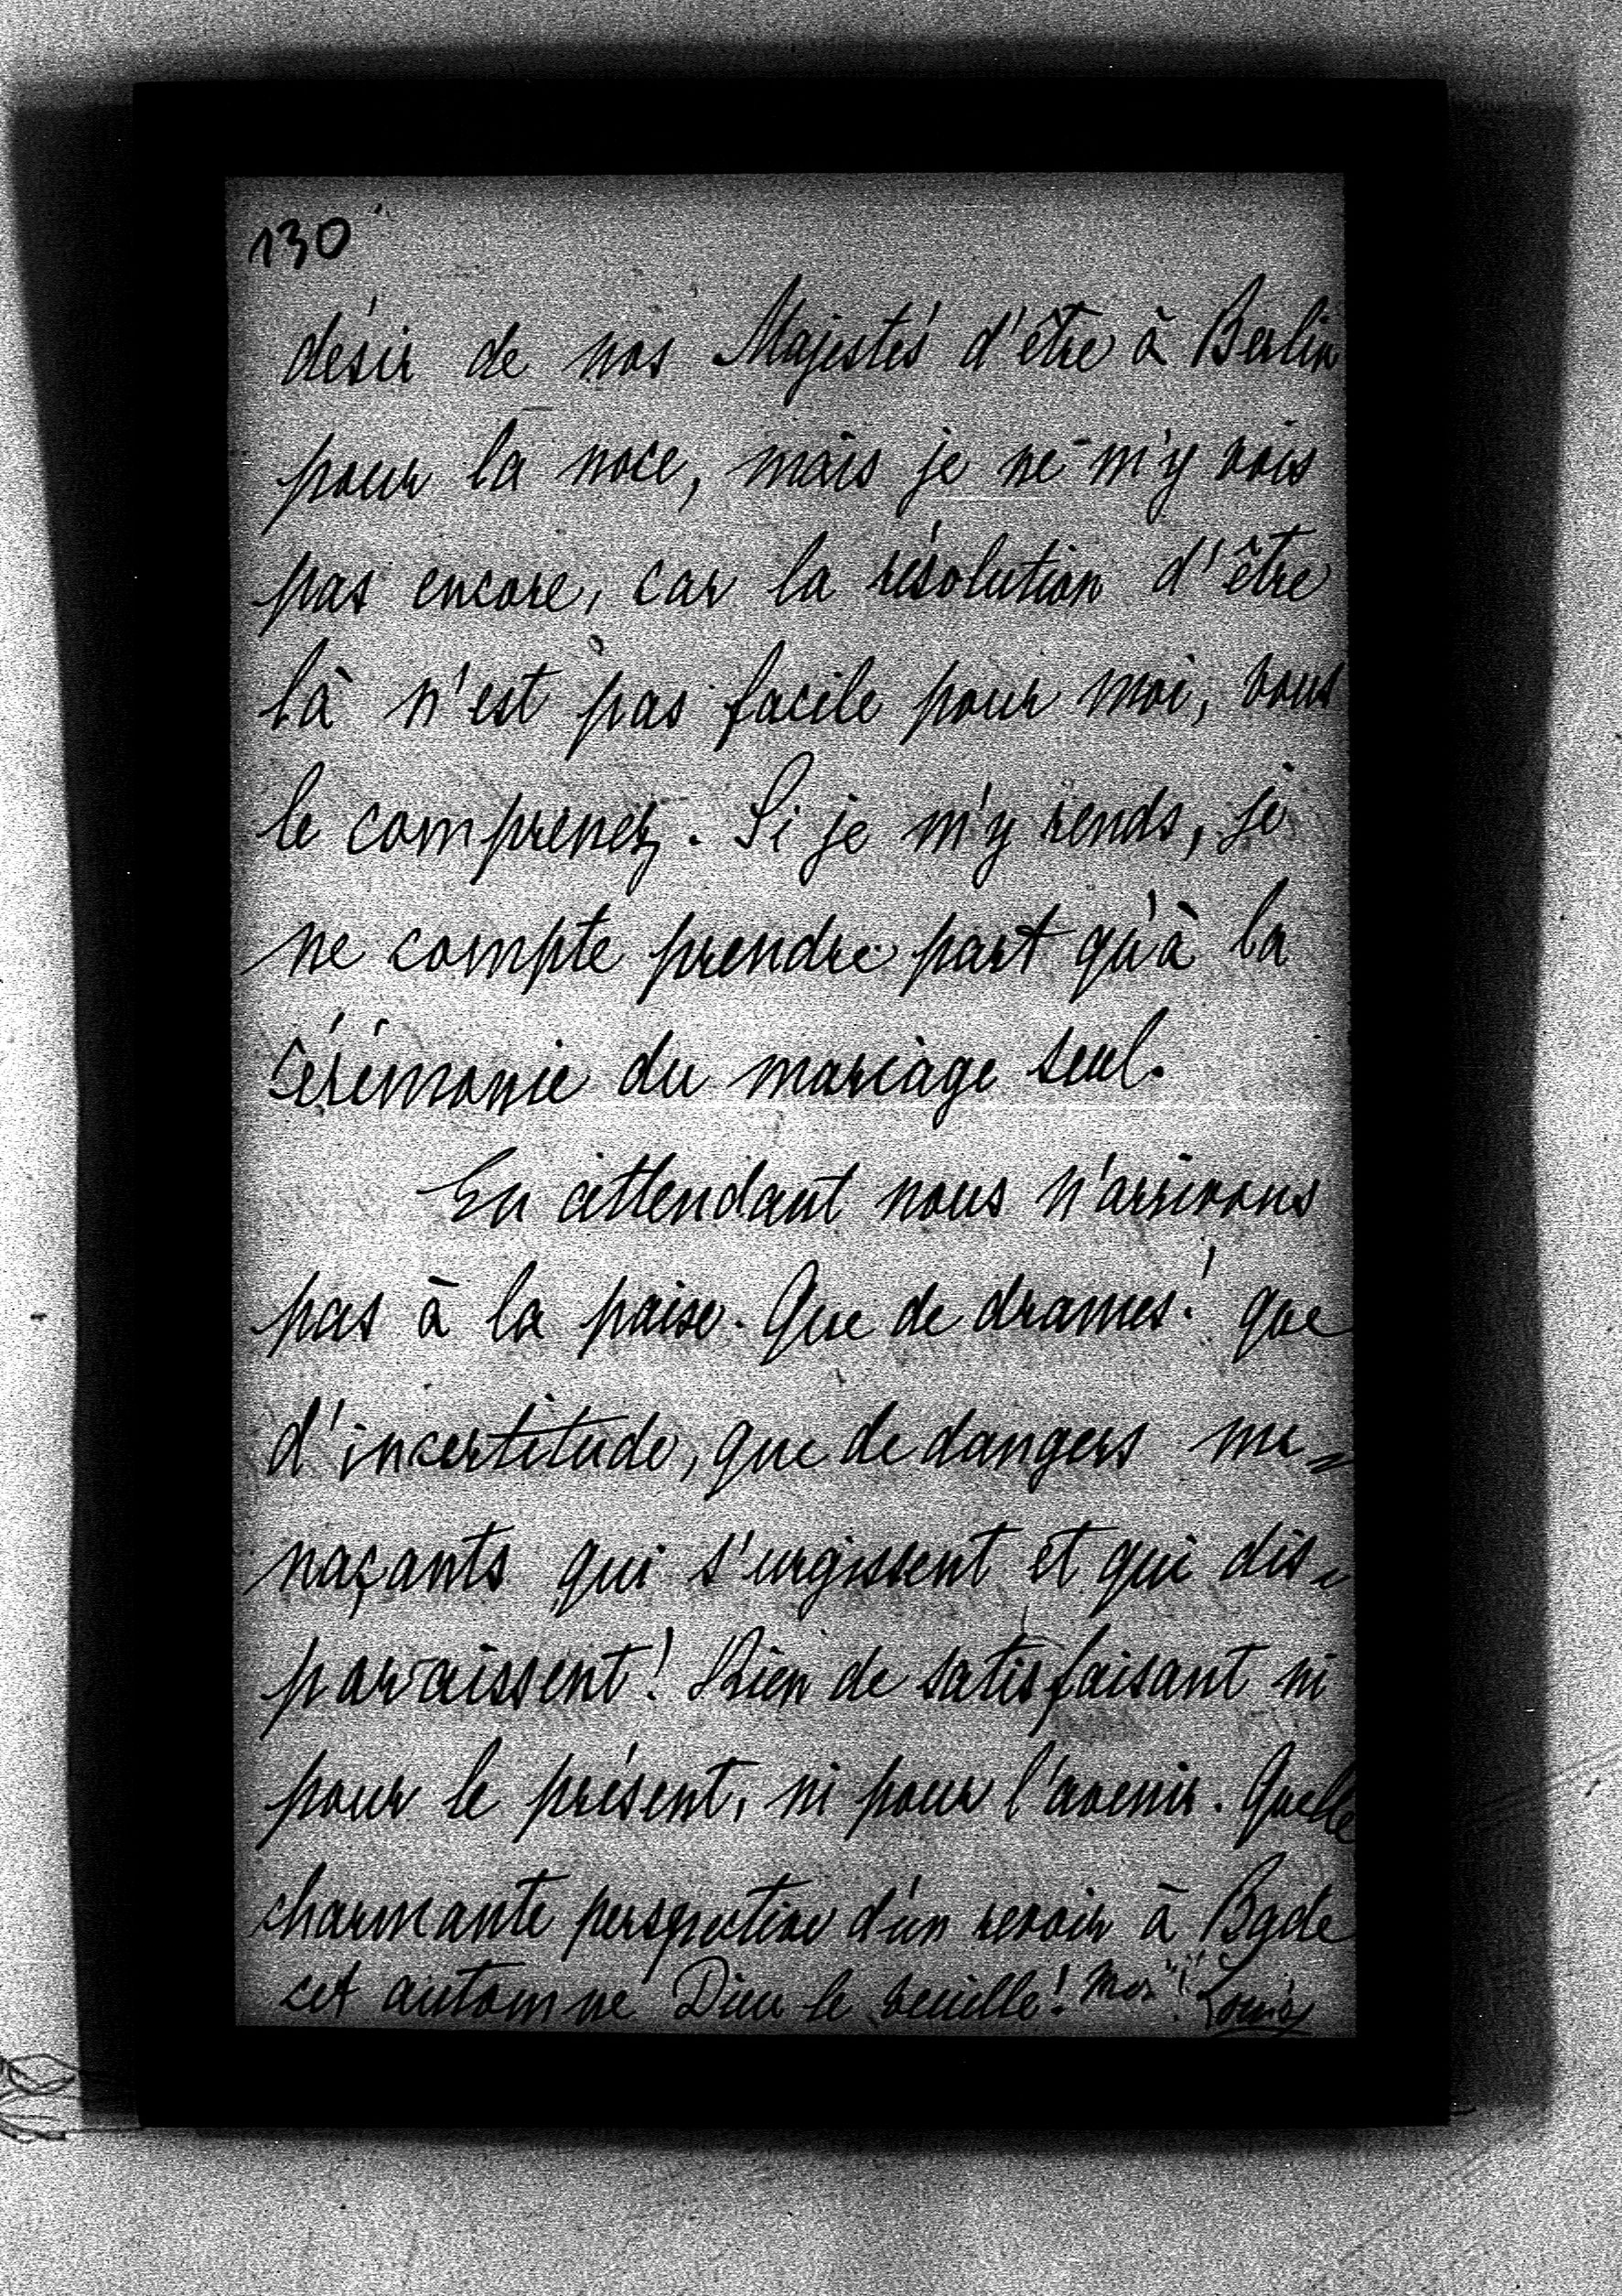 130
désir de nos Majestés d'être à Berlin
pour la noce, mais je ne m'y vois
pas encore, car la résolution d'être
là n'est pas facile pour moi, vous
le comprenez. Si je m'y rends, je
ne compte prendre part qu'à la
cérémonie du mariage seul.
En attendant nous n'arrivons
pas à la paix. Que de drames! que
d'incertitude, que de dangers me=
naçants qui s'urgissent et qui dis=
paraissent! Rien de satisfaisant ni
pour le présent, ni pour l'avenir. Quelle
charmante perspective d'un revoir à Bade
cet automne Dieu le veuille! Louis